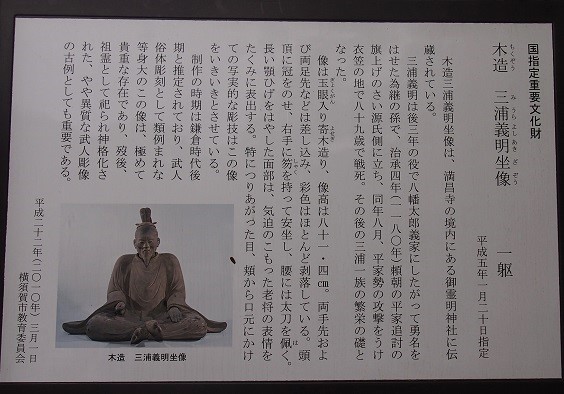 国指定重要文化財
木造　三浦義明坐像　　一躯
もくぞう　みうらよしあきざぞう
平成五年一月二十日指定
木造三浦義明坐像は、満昌寺の境内にある御霊明神社に伝
蔵されている。
三浦義明は後三年の役で八幡太郎義家にしたがって勇名を
はせた為継の孫で、治承四年（一一八〇年）頼朝の平家追討の
旗上げのさい源氏側に立ち、同年八月、平家勢の攻撃をうけ
衣笠の地で八十九歳で戦死。その後の三浦一族の繁栄の礎と
なった。
像は玉眼入り寄木造り、像高は八十一・四㎝。両手先およ
び両足先などは差し込み、彩色はほとんど剥落している。頭
頂に冠をのせ、右手に笏を持って安坐し、腰には太刀を佩く。
長い顎ひげをはやした面部は、気迫のこもった老将の表情を
たくみに表出する。特につりあがった目、頬から口元にかけ
ての写実的な彫技はこの像
をいきいきとさせている。
制作の時期は鎌倉時代後
期と推定されており、武人
俗体彫刻として類例まれな
等身大のこの像は、極めて
貴重な存在であり、歿後、
祖霊として祀られ神格化さ
れた、やや異質な武人彫像
の古例としても重要である。
平成二十二年（二〇一〇年）三月一日
横須賀市教育委員会
木造　三浦義明坐像